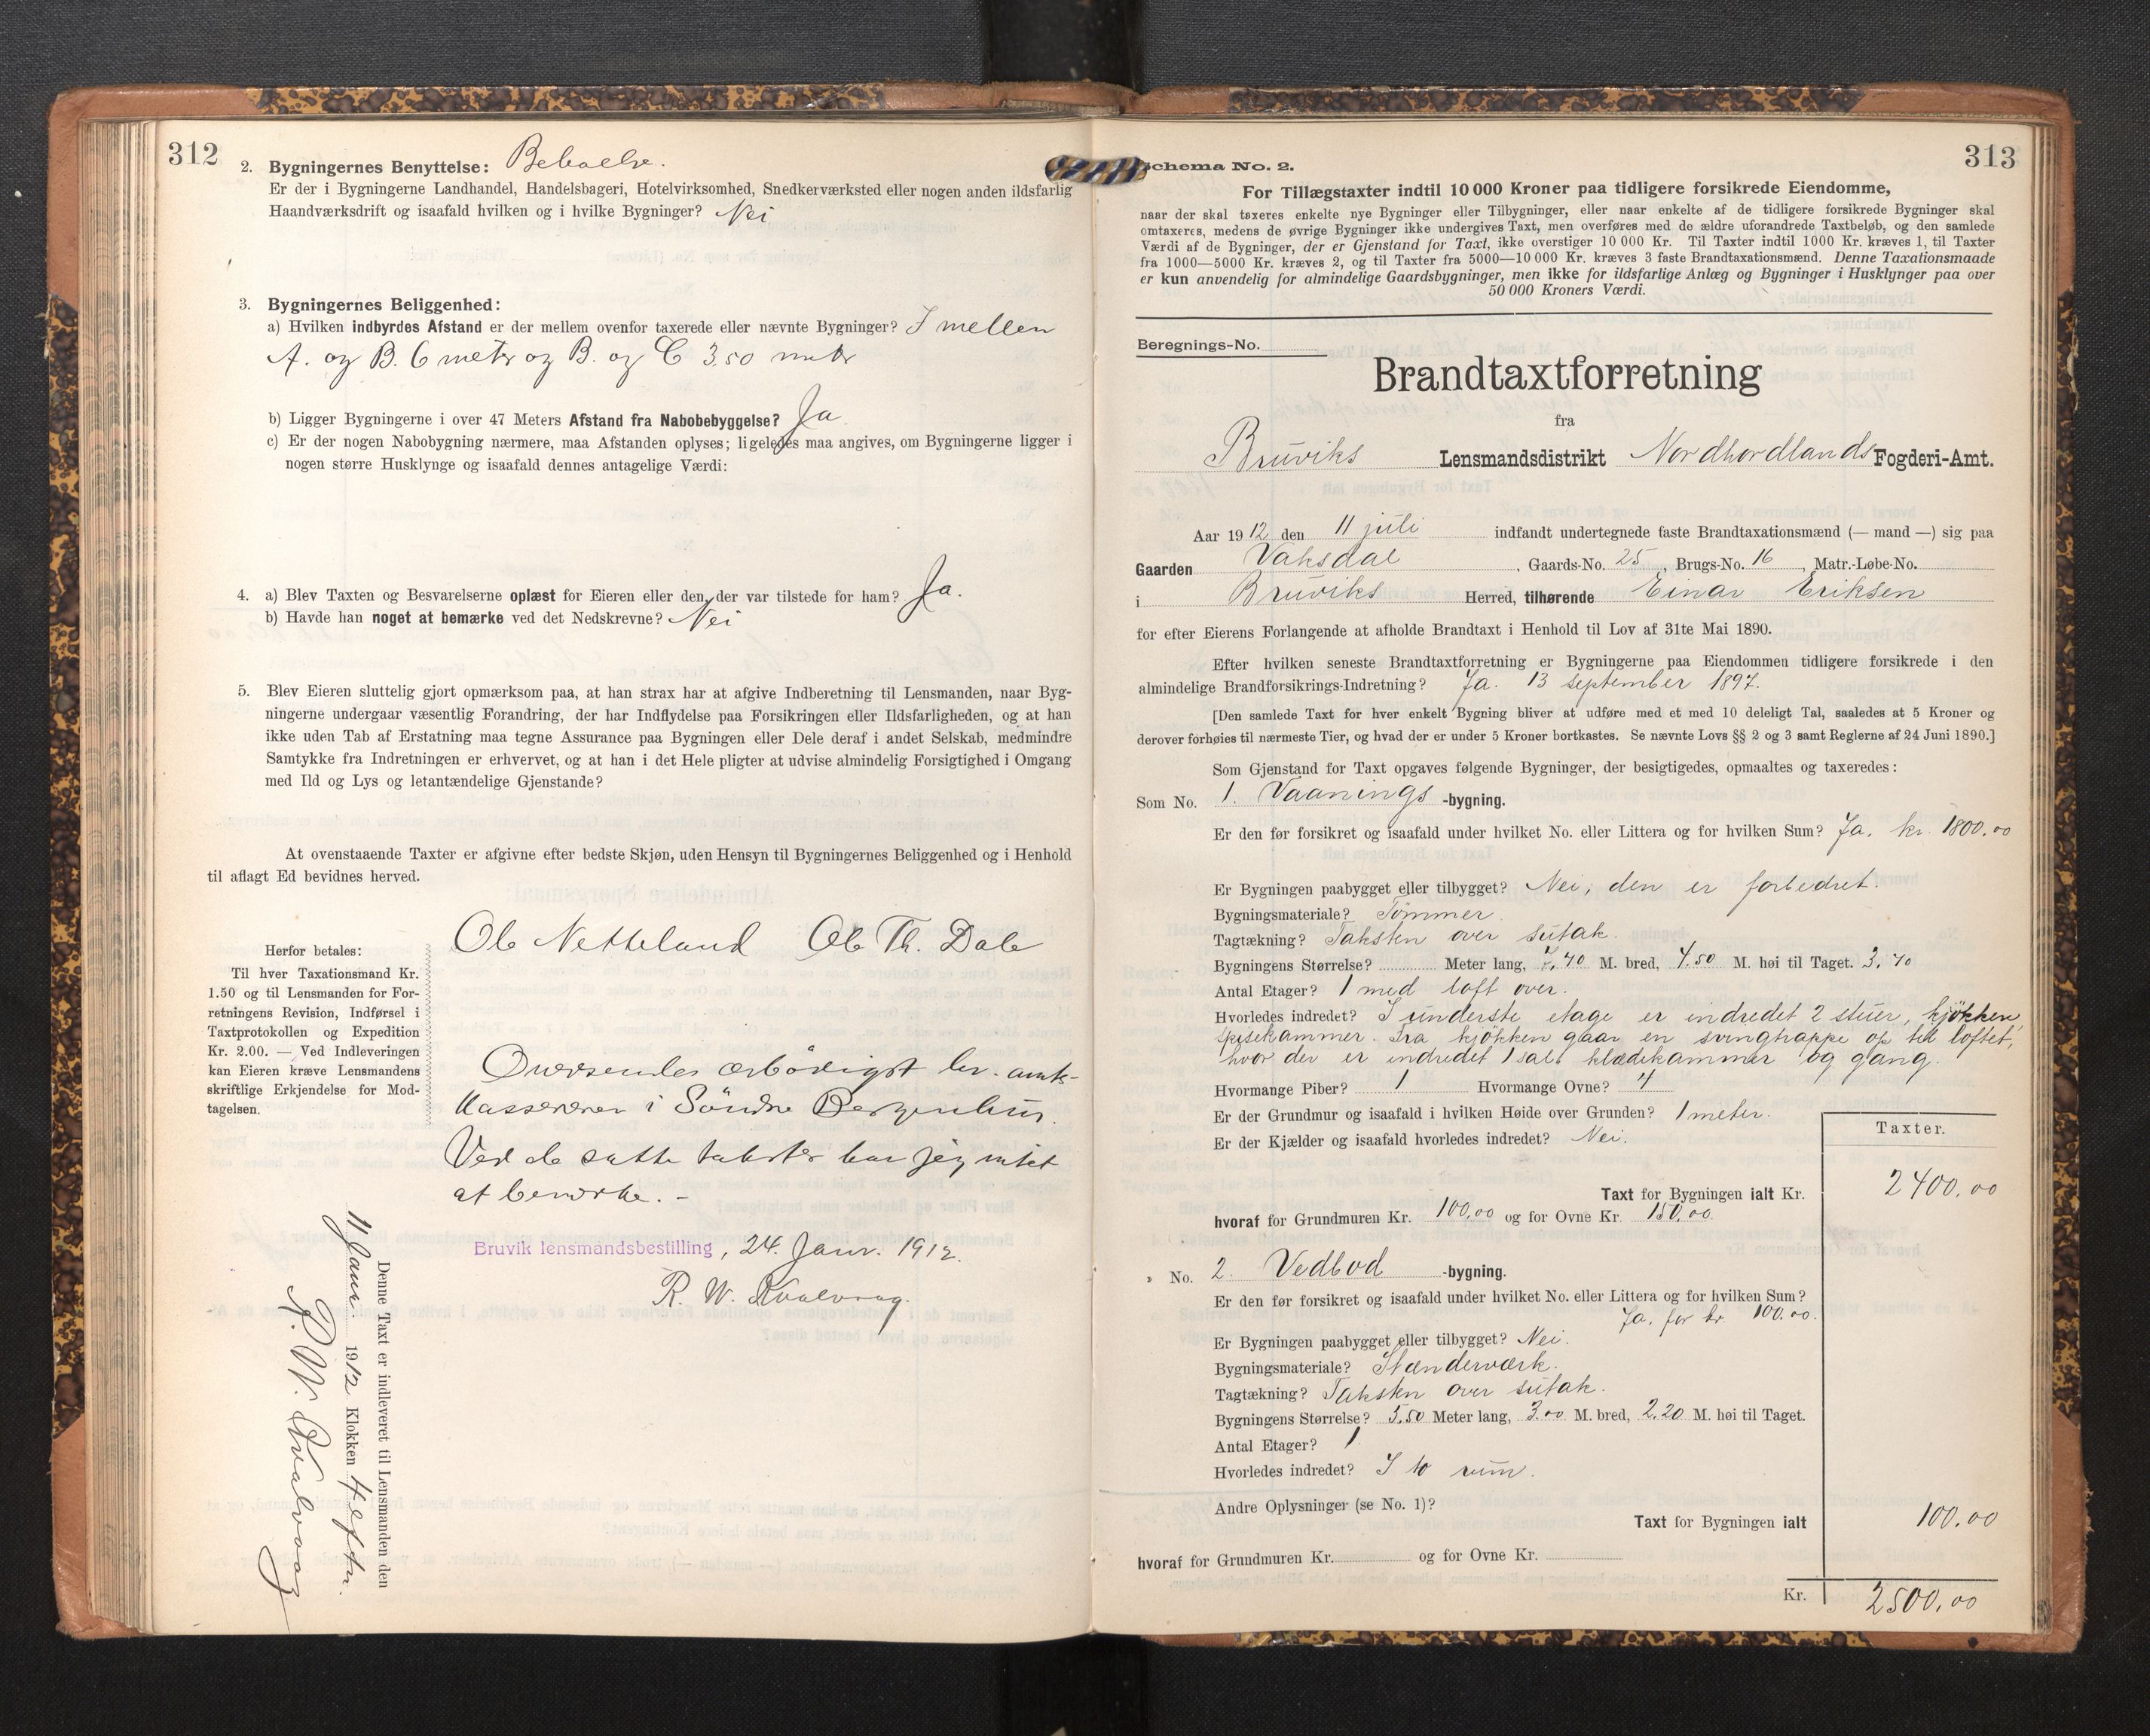 312
2. Bygningernes Benyttelse: Beboelse.
Er der i Bygningerne Landhandel, Handelsbageri, Hotelvirksomhed, Snedkerværksted eller nogen anden ildsfarlig
Haandværksdrift og isaafald hvilken og i hvilke Bygninger? Nei
3. Bygningernes Beliggenhed:
a) Hvilken indbyrdes Afstand er der mellem ovenfor taxerede eller nævnte Bygninger? I mellen
A. og B. 6 metr og B. og C 3.50 metr
b) Ligger Bygningerne i over 47 Meters Afstand fra Nabobebyggelse? Ja
c) Er der nogen Nabobygning nærmere, maa Afstanden oplyses; ligeledes maa angives, om Bygningerne ligger i
nogen større Husklynge og isaafald dennes antagelige Værdi:
4. a) Blev Taxten og Besvarelserne oplæst for Eieren eller den, der var tilstede for ham? Ja.
b) Havde han noget at bemærke ved det Nedskrevne? Nei
5. Blev Eieren sluttelig gjort opmærksom paa, at han strax har at afgive Indberetning til Lensmanden, naar Byg-
ningerne undergaar væsentlig Forandring, der har Indflydelse paa Forsikringen eller Ildsfarligheden, og at han
ikke uden Tab af Erstatning maa tegne Assurance paa Bygningen eller Dele deraf i andet Selskab, medmindre
Samtykke fra Indretningen er erhvervet, og at han i det Hele pligter at udvise almindelig Forsigtighed i Omgang
med Ild og Lys og letantændelige Gjenstande?
At ovenstaaende Taxter er afgivne efter bedste Skjøn, uden Hensyn til Bygningernes Beliggenhed og i Henhold
til aflagt Ed bevidnes herved.
Ole Netteland Ole Th. Dale
Herfor betales:
Til hver Taxationsmand Kr.
1.50 og til Lensmanden for For-
retningens Revision, Indførsel i
Taxtprotokollen og Expedition
Kr. 2.00. — Ved Indleveringen
kan Eieren kræve Lensmandens
skriftlige Erkjendelse for Mod-
tagelsen.
Oversendes ærbödigst hr. amts-
kassereren i Söndre Bergenhus.
Ved de satte takster har jeg intet
at bemerke. -
Bruvik lensmandsbestilling, 24. Janr. 1912.
R. W. Kvalvaag.
Denne Taxt er indleveret til Lensmanden den
11 Janr. 1912 Klokken 4 eftm.
R. W. Kvalvaag
313
Schema No. 2.
For Tillægstaxter indtil 10 000 Kroner paa tidligere forsikrede Eiendomme,
naar der skal taxeres enkelte nye Bygninger eller Tilbygninger, eller naar enkelte af de tidligere forsikrede Bygninger skal
omtaxeres, medens de øvrige Bygninger ikke undergives Taxt, men overføres med de ældre uforandrede Taxtbeløb, og den samlede
Værdi af de Bygninger, der er Gjenstand for Taxt, ikke overstiger 10 000 Kr. Til Taxter indtil 1000 Kr. kræves 1, til Taxter
fra 1000—5000 Kr. kræves 2, og til Taxter fra 5000—10 000 Kr. kræves 3 faste Brandtaxationsmænd. Denne Taxationsmaade
er kun anvendelig for almindelige Gaardsbygninger, men ikke for ildsfarlige Anlæg og Bygninger i Husklynger paa over
50 000 Kroners Værdi.
Beregnings-No.
Brandtaxtforretning
fra
Bruviks Lensmandsdistrikt Nordhordlands Fogderi-Amt.
Aar 1912 den 11 juli indfandt undertegnede faste Brandtaxationsmænd (— mand —) sig paa
Gaarden Vaksdal, Gaards-No. 25, Brugs-No. 16, Matr.-Løbe-No.
i Bruviks Herred, tilhørende Einar Eriksen
for efter Eierens Forlangende at afholde Brandtaxt i Henhold til Lov af 31te Mai 1890.
Efter hvilken seneste Brandtaxtforretning er Bygningerne paa Eiendommen tidligere forsikrede i den
almindelige Brandforsikrings-Indretning? Ja. 13 september 1897.
[Den samlede Taxt for hver enkelt Bygning bliver at udføre med et med 10 deleligt Tal, saaledes at 5 Kroner og
derover forhøies til nærmeste Tier, og hvad der er under 5 Kroner bortkastes. Se nævnte Lovs §§ 2 og 3 samt Reglerne af 24 Juni 1890.]
Som Gjenstand for Taxt opgaves følgende Bygninger, der besigtigedes, opmaaltes og taxeredes:
Som No. 1. Vaanings-bygning.
Er den før forsikret og isaafald under hvilket No. eller Littera og for hvilken Sum? Ja. kr. 1800.00
Er Bygningen paabygget eller tilbygget? Nei, den er forbedret.
Bygningsmateriale? Tömmer.
Tagtækning? Taksten over sutak.
Bygningens Størrelse? Meter lang, 7.40 M. bred, 4.50 M. høi til Taget. 3.40
Antal Etager? 1 med loft over.
Hvorledes indredet? I underste etage er indredet 2 stuer, kjökken,
spisekammer. Fra kjökken gaar en svingtrappe op til loftet,
hvor der er indredet 1 sal, klædekammer og gang.
Hvormange Piber? 1 Hvormange Ovne? 4
Er der Grundmur og isaafald i hvilken Høide over Grunden? 1 meter.
Er der Kjælder og isaafald hvorledes indredet? Nei.
Taxter.
Taxt for Bygningen ialt Kr. 2400.00
hvoraf for Grundmuren Kr. 100.00 og for Ovne Kr. 150.00.
» No. 2. Vedbod -bygning.
Er den før forsikret og isaafald under hvilket No. eller Littera og for hvilken Sum?
Ja, for kr. 100.00.
Er Bygningen paabygget eller tilbygget? Nei.
Bygningsmateriale? Stænderværk.
Tagtækning? Taksten over sutak.
Bygningens Størrelse? 5.50 Meter lang, 3.00 M. bred, 2.20 M. høi til Taget.
Antal Etager? 1
Hvorledes indredet? I to rum.
Andre Oplysninger (se No. 1)?
Taxt for Bygningen ialt 100.00
hvoraf for Grundmuren Kr. og for Ovne Kr.
Kr. 2500.00